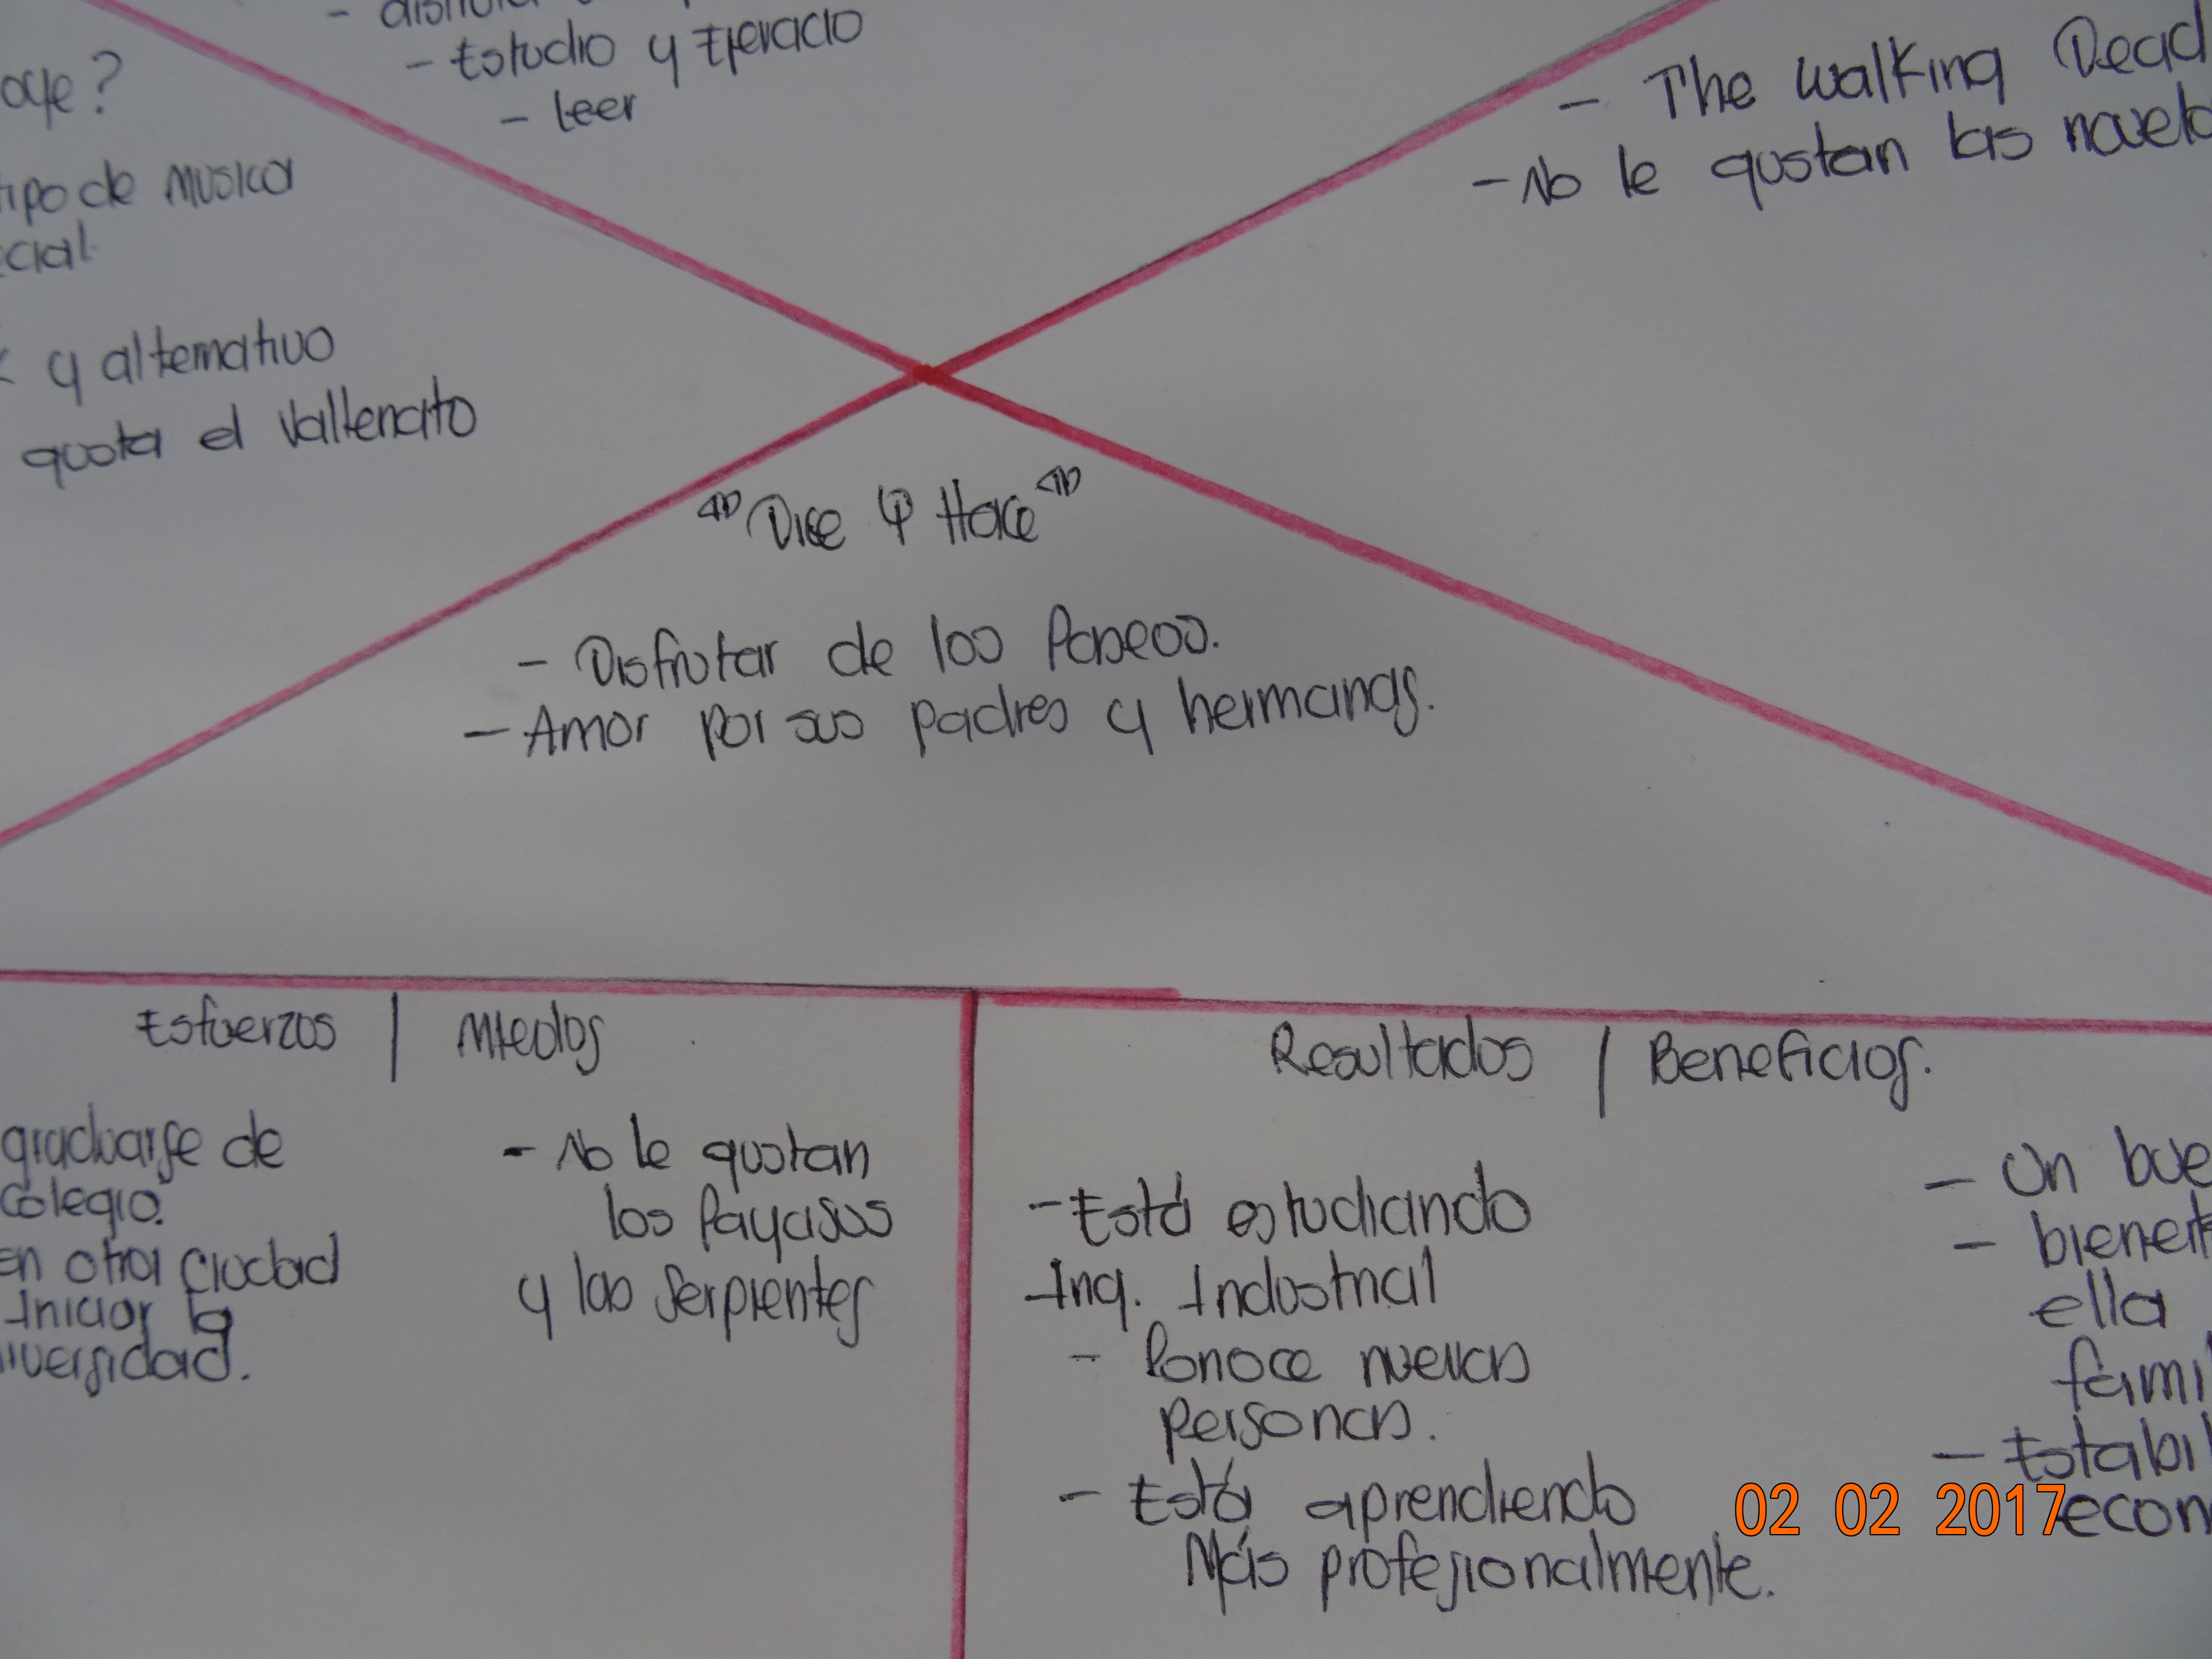 - Estudio y Ejercicio
- Leer
- The Walking Dead
- No le gustan las
tipo de musica
y alternativo
gusta el Vallenato
"Dice Y Hace"
- Disfrutar de los Paseos.
- Amor por sus padres y hermanas.
Esfuerzos | Miedos
graduarse de
colegio.
en otra ciudad
Iniciar la
- No le gustan
los Payasos
y las Serpientes
Resultados | Beneficios.
- Está estudiando
Ing. Industrial
- Conoce nuevas
personas.
- Está aprendiendo
Más profesionalmente.
- Un
-
ella
-
02 02 2017